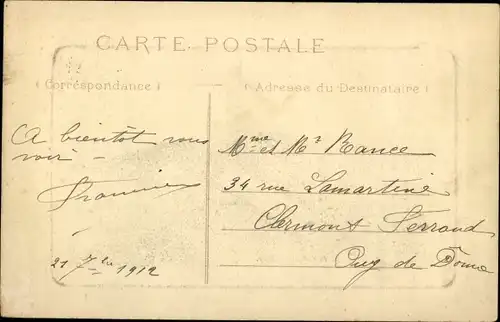 CARTE POSTALE
( Correspondance )
( Adresse du Destinataire )
A bientot vous
voir -
21 7bre 1912
Mme et Mr Rance
34 rue Lamartine
Clermont Ferrand
Puy de Dôme